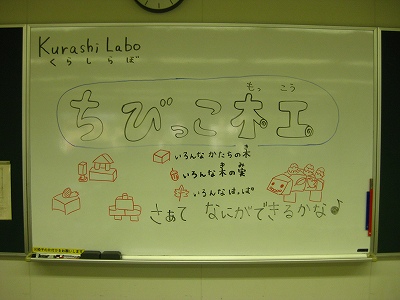 Kurashi Labo
くらしらぼ
もっ こう
ちびっこ木工
いろんなかたちの木
いろんな木の実
いろんなはっぱ
さぁて なにができるかな♪